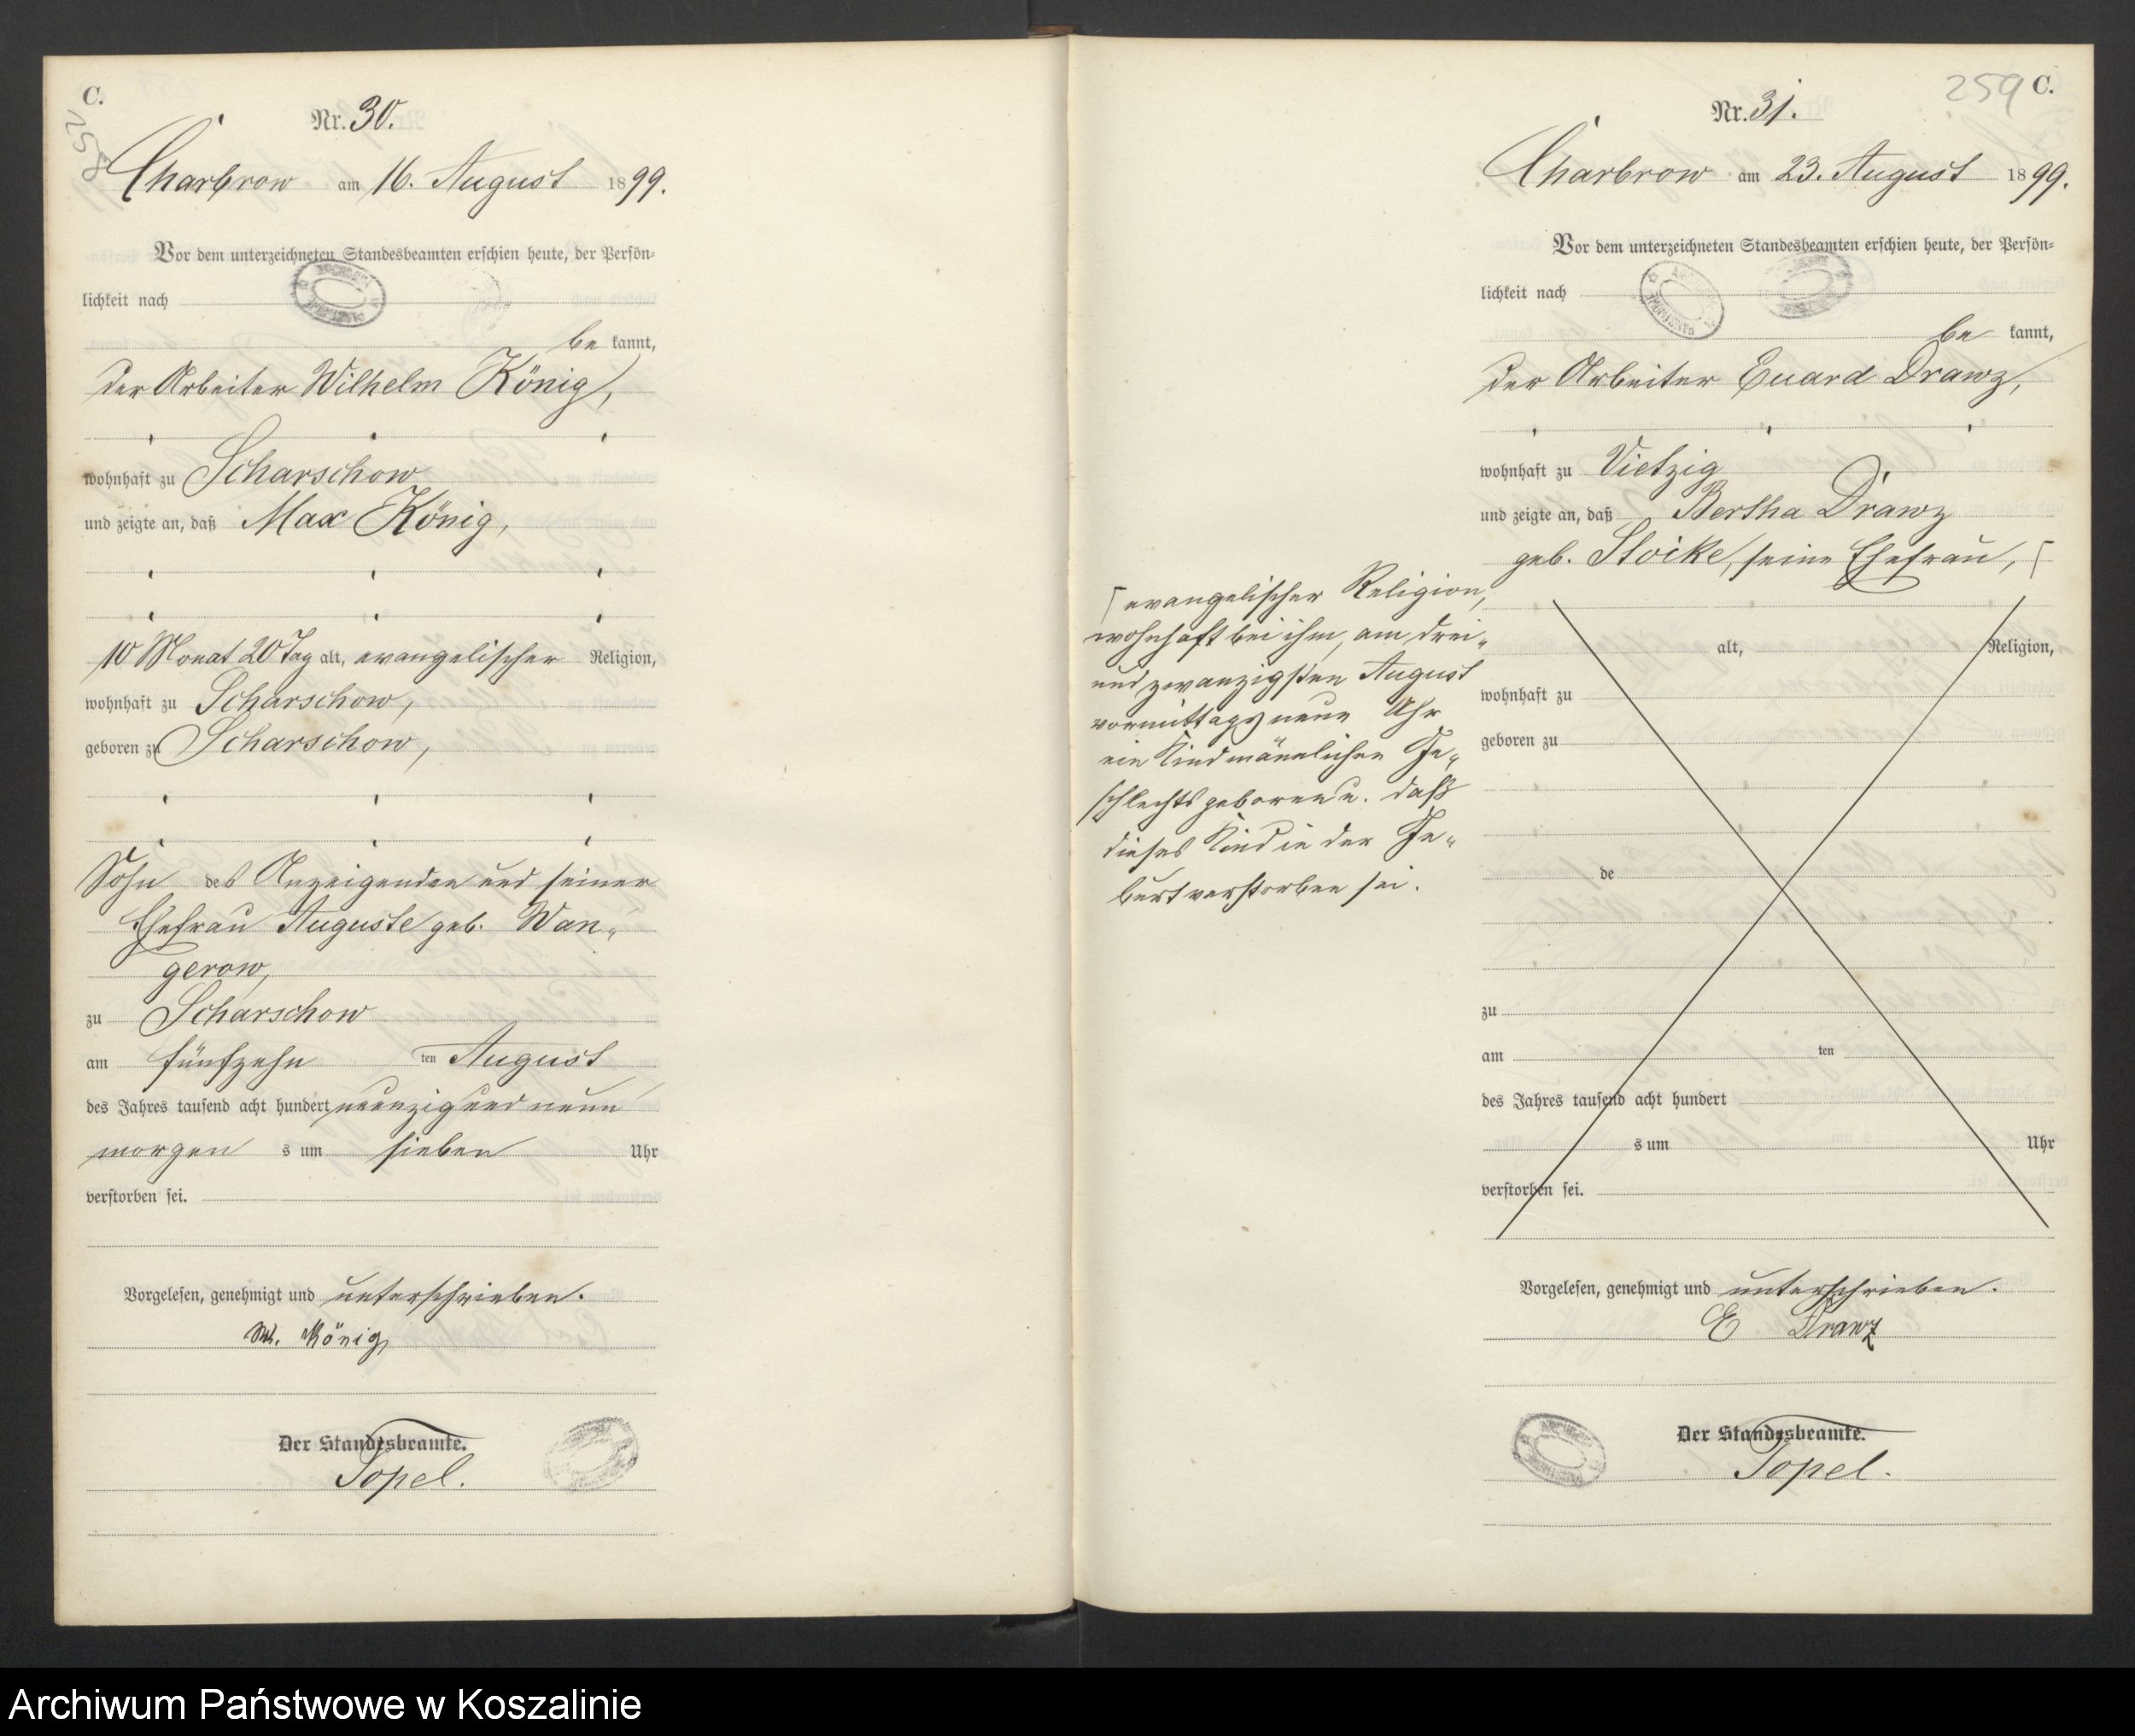 C.
258
Nr. 30.
Charbrow am 16. August 1899.
Vor dem unterzeichneten Standesbeamten erschien heute, der Persön-
lichkeit nach
be kannt,
der Arbeiter Wilhelm König,
wohnhaft zu Scharschow
und zeigte an, daß Max König,
10 Monat 20 Tag alt, evangelischer Religion,
wohnhaft zu Scharschow,
geboren zu Scharschow,
Sohn des Anzeigenden und seiner
Ehefrau Auguste geb. Wan-
gerow,
zu Scharschow
am fünfzehn ten August
des Jahres tausend acht hundert neunzig und neun
morgen s um sieben Uhr
verstorben sei.
Vorgelesen, genehmigt und unterschrieben.
W. König
Der Standesbeamte.
Topel.
259 C.
Nr. 31.
Charbrow am 23. August 1899.
Vor dem unterzeichneten Standesbeamten erschien heute, der Persön-
lichkeit nach
be kannt,
der Arbeiter Euard Drawz,
wohnhaft zu Vietzig
und zeigte an, daß Bertha Drawz
geb. Stoike, seine Ehefrau, ⌈
⌈ evangelischer Religion,
wohnhaft bei ihm, am drei-
und zwanzigsten August
vormittags neun Uhr
ein Kind männlichen Ge-
schlechts geboren u. daß
dieses Kind in der Ge-
burt verstorben sei.
alt, Religion,
wohnhaft zu
geboren zu
de
zu
am ten
des Jahres tausend acht hundert
s um Uhr
verstorben sei.
Vorgelesen, genehmigt und unterschrieben.
E Drawz
Der Standesbeamte.
Topel.
Archiwum Państwowe w Koszalinie